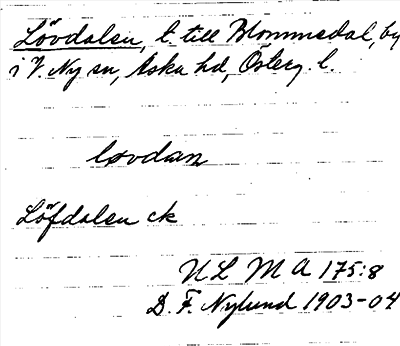 Lövdalen, t. till Blommedal, by
i V. Ny sn, Aska hd, Österg. l.
løvdan
Löfdalen ck
ULMA 175:8
D. F. Nylund 1903-04